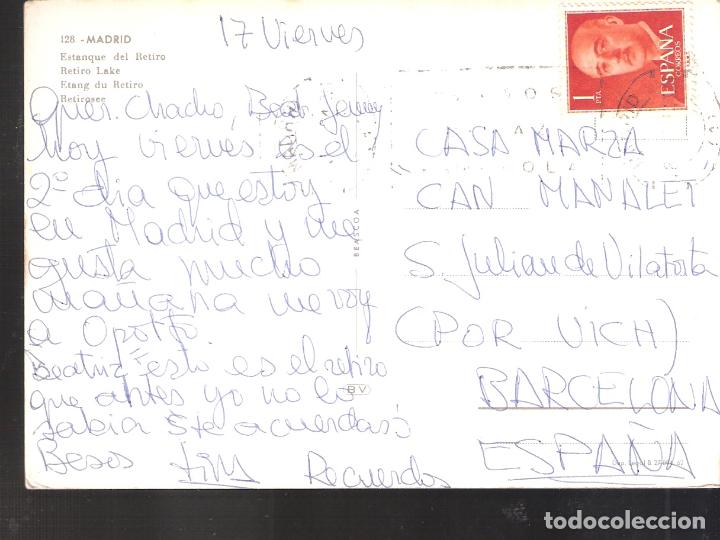 128 - MADRID
Estanque del Retiro
Retiro Lake
Etang du Retiro
Reticosee
17 Viernes
Quer. Chacho, Beatr. Jenny
Hoy viernes es el
2º dia que estoy
en Madrid y me
gusta mucho
mañana me voy
a Oporto.
Beatriz esto es el retiro
que antes yo no lo
sabia
te acuerdas?
Besos
Recuerdos
BEASCOA
BV
1
PTA
ESPAÑA
CORREOS
CASA MARZA
CAN MANALET
S. Julian de Vilatorta
(POR VICH)
BARCELONA
ESPAÑA
todocoleccion.net